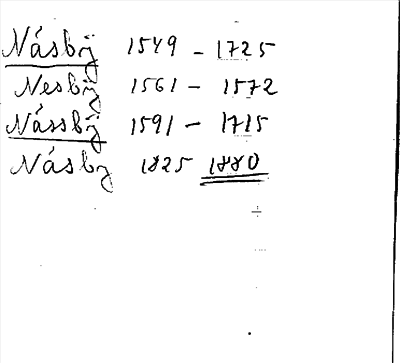 Násbÿ 1549 - 1725
Nesbÿ 1561 - 1572
Nässbÿ 1591 - 1715
Násby 1825 1880